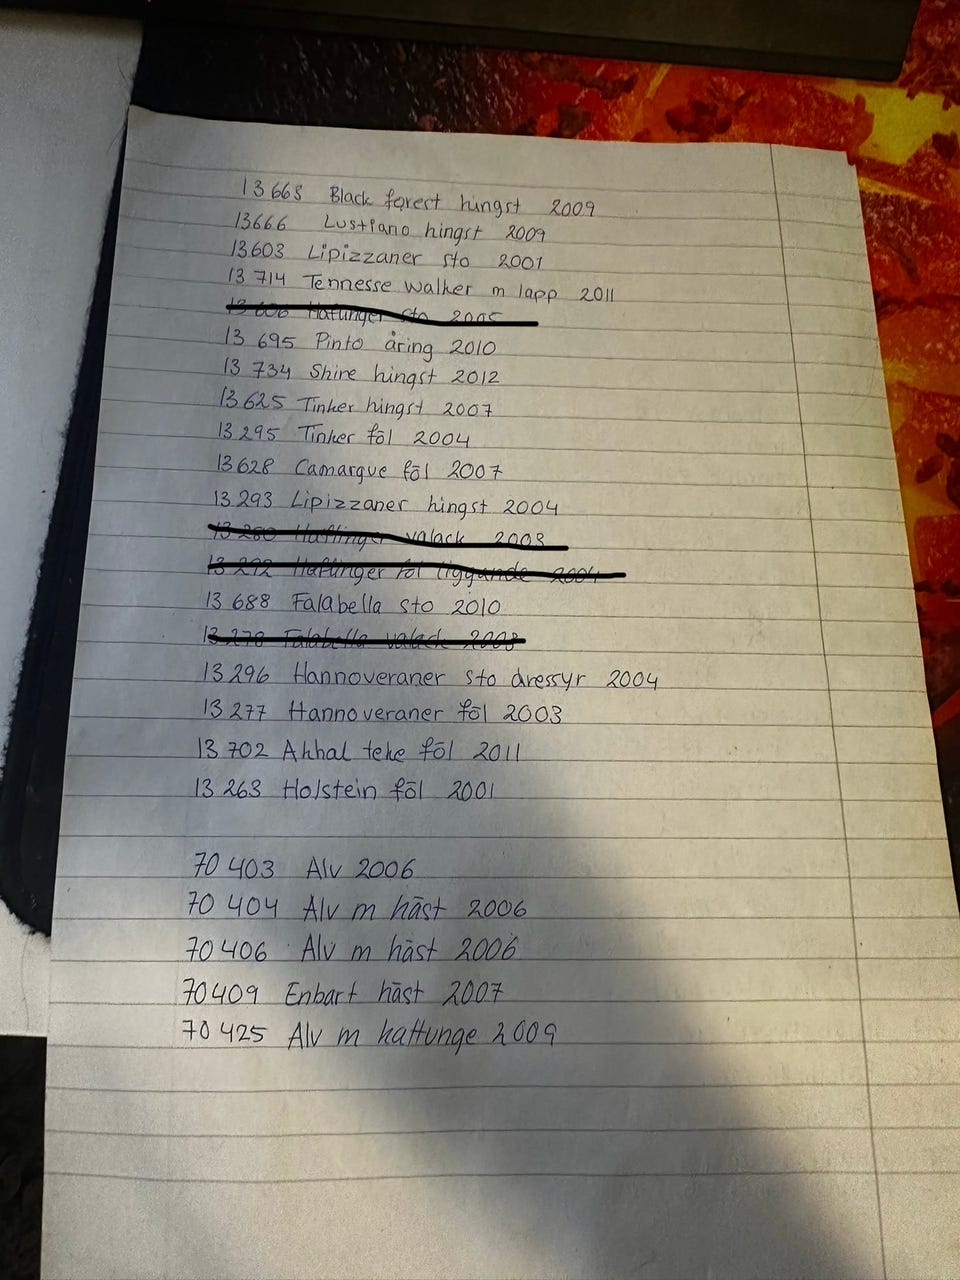 13 668 Black forest hingst 2009
13666 Lustiano hingst 2009
13603 Lipizzaner sto 2001
13 714 Tennesse walker m lapp 2011
13 606 Haflinger sto 2005
13 695 Pinto åring 2010
13 734 Shire hingst 2012
13 625 Tinker hingst 2007
13 295 Tinker föl 2004
13 628 Camargue föl 2007
13 293 Lipizzaner hingst 2004
13 280 Haflinger valack 2003
13 292 Haflinger föl liggande 2004
13 688 Falabella sto 2010
13 278 Falabella valack 2003
13 296 Hannoveraner sto dressyr 2004
13 277 Hannoveraner föl 2003
13 702 Akhal teke föl 2011
13 263 Holstein föl 2001
70 403 Alv 2006
70 404 Alv m häst 2006
70 406 Alv m häst 2006
70409 Enbart häst 2007
70 425 Alv m kattunge 2009